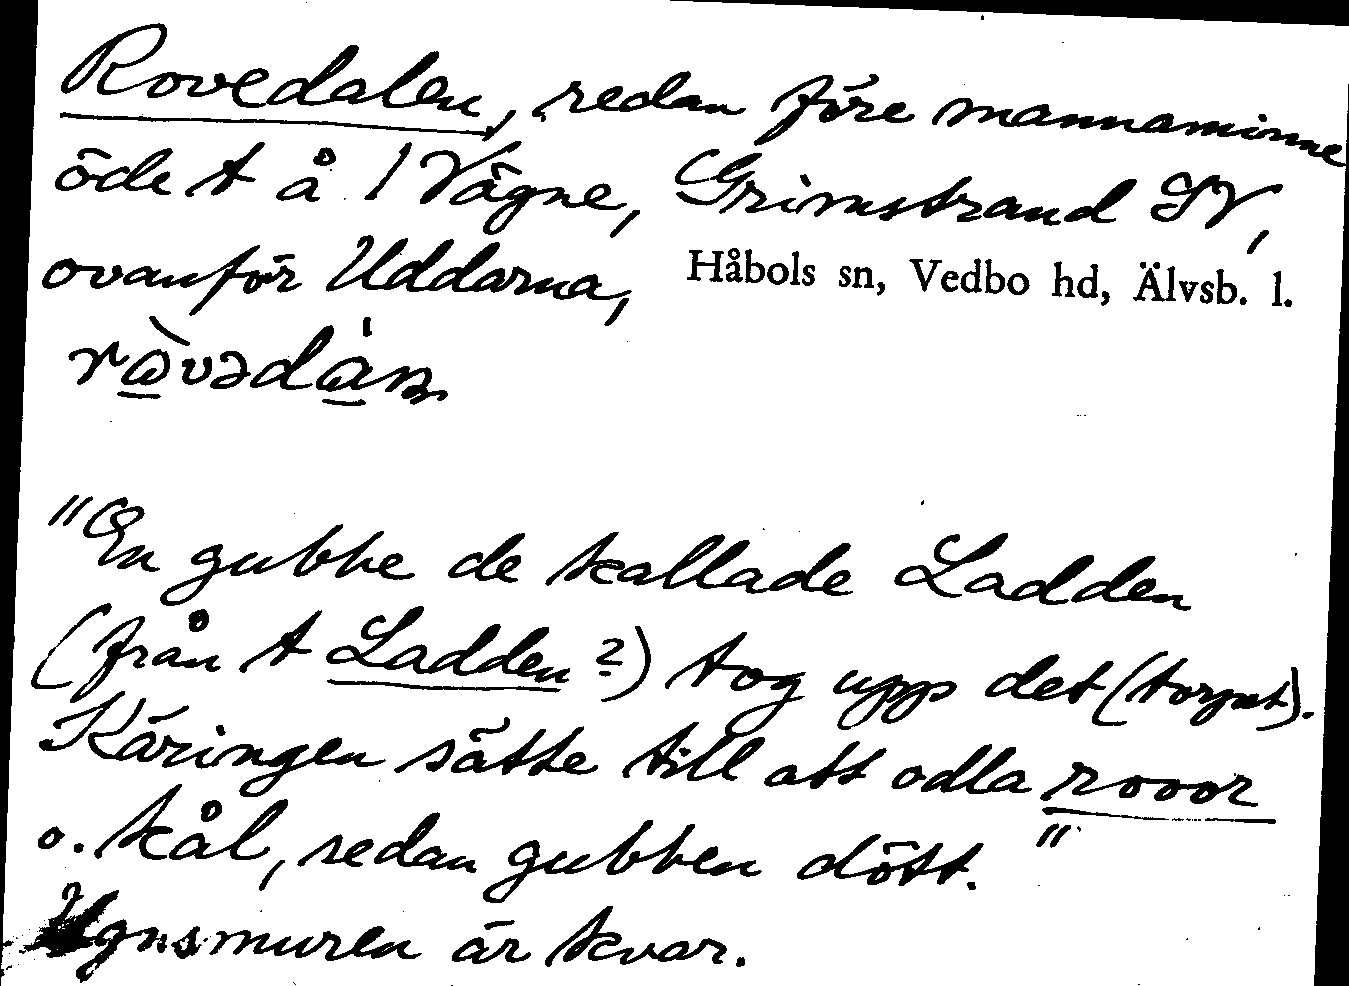 Rovedalen, redan före mannaminne
öde t å 1 Vägne, Grimstrand SV,
ovanför Uddarna, Håbols sn, Vedbo hd, Älvsb. l.
"En gubbe de kallade Ladden
(från t Ladden?) tog upp det (torpet).
Käringen sätte till att odla rovor
o. kål, sedan gubben dött."
Ugnsmuren är kvar.